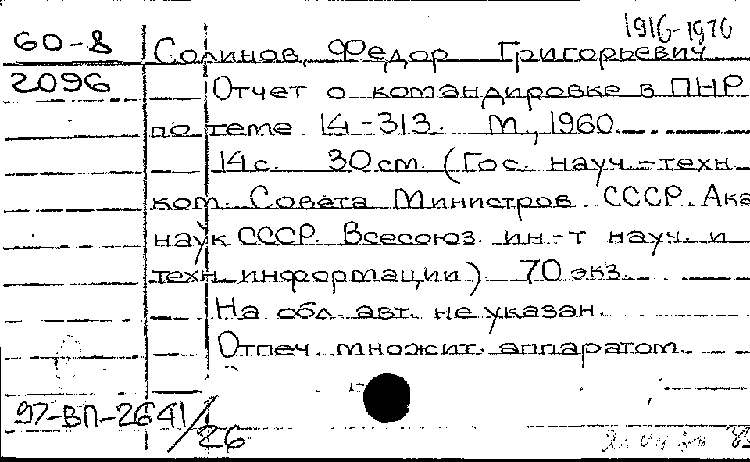 1916-1976
60-8 Солинов, Федор Григорьевич
2096 Отчет о командировке в ПНР
по теме 14-313. М., 1960.
14с. 30см. (Гос. науч.-техн.
ком. Совета Министров СССР. Ака
наук СССР. Всесоюз. ин-т науч. и
техн. информации). 70 экз.
На обл. авт. не указан.
Отпеч. множит. аппаратом.
97-ВП-2641/26